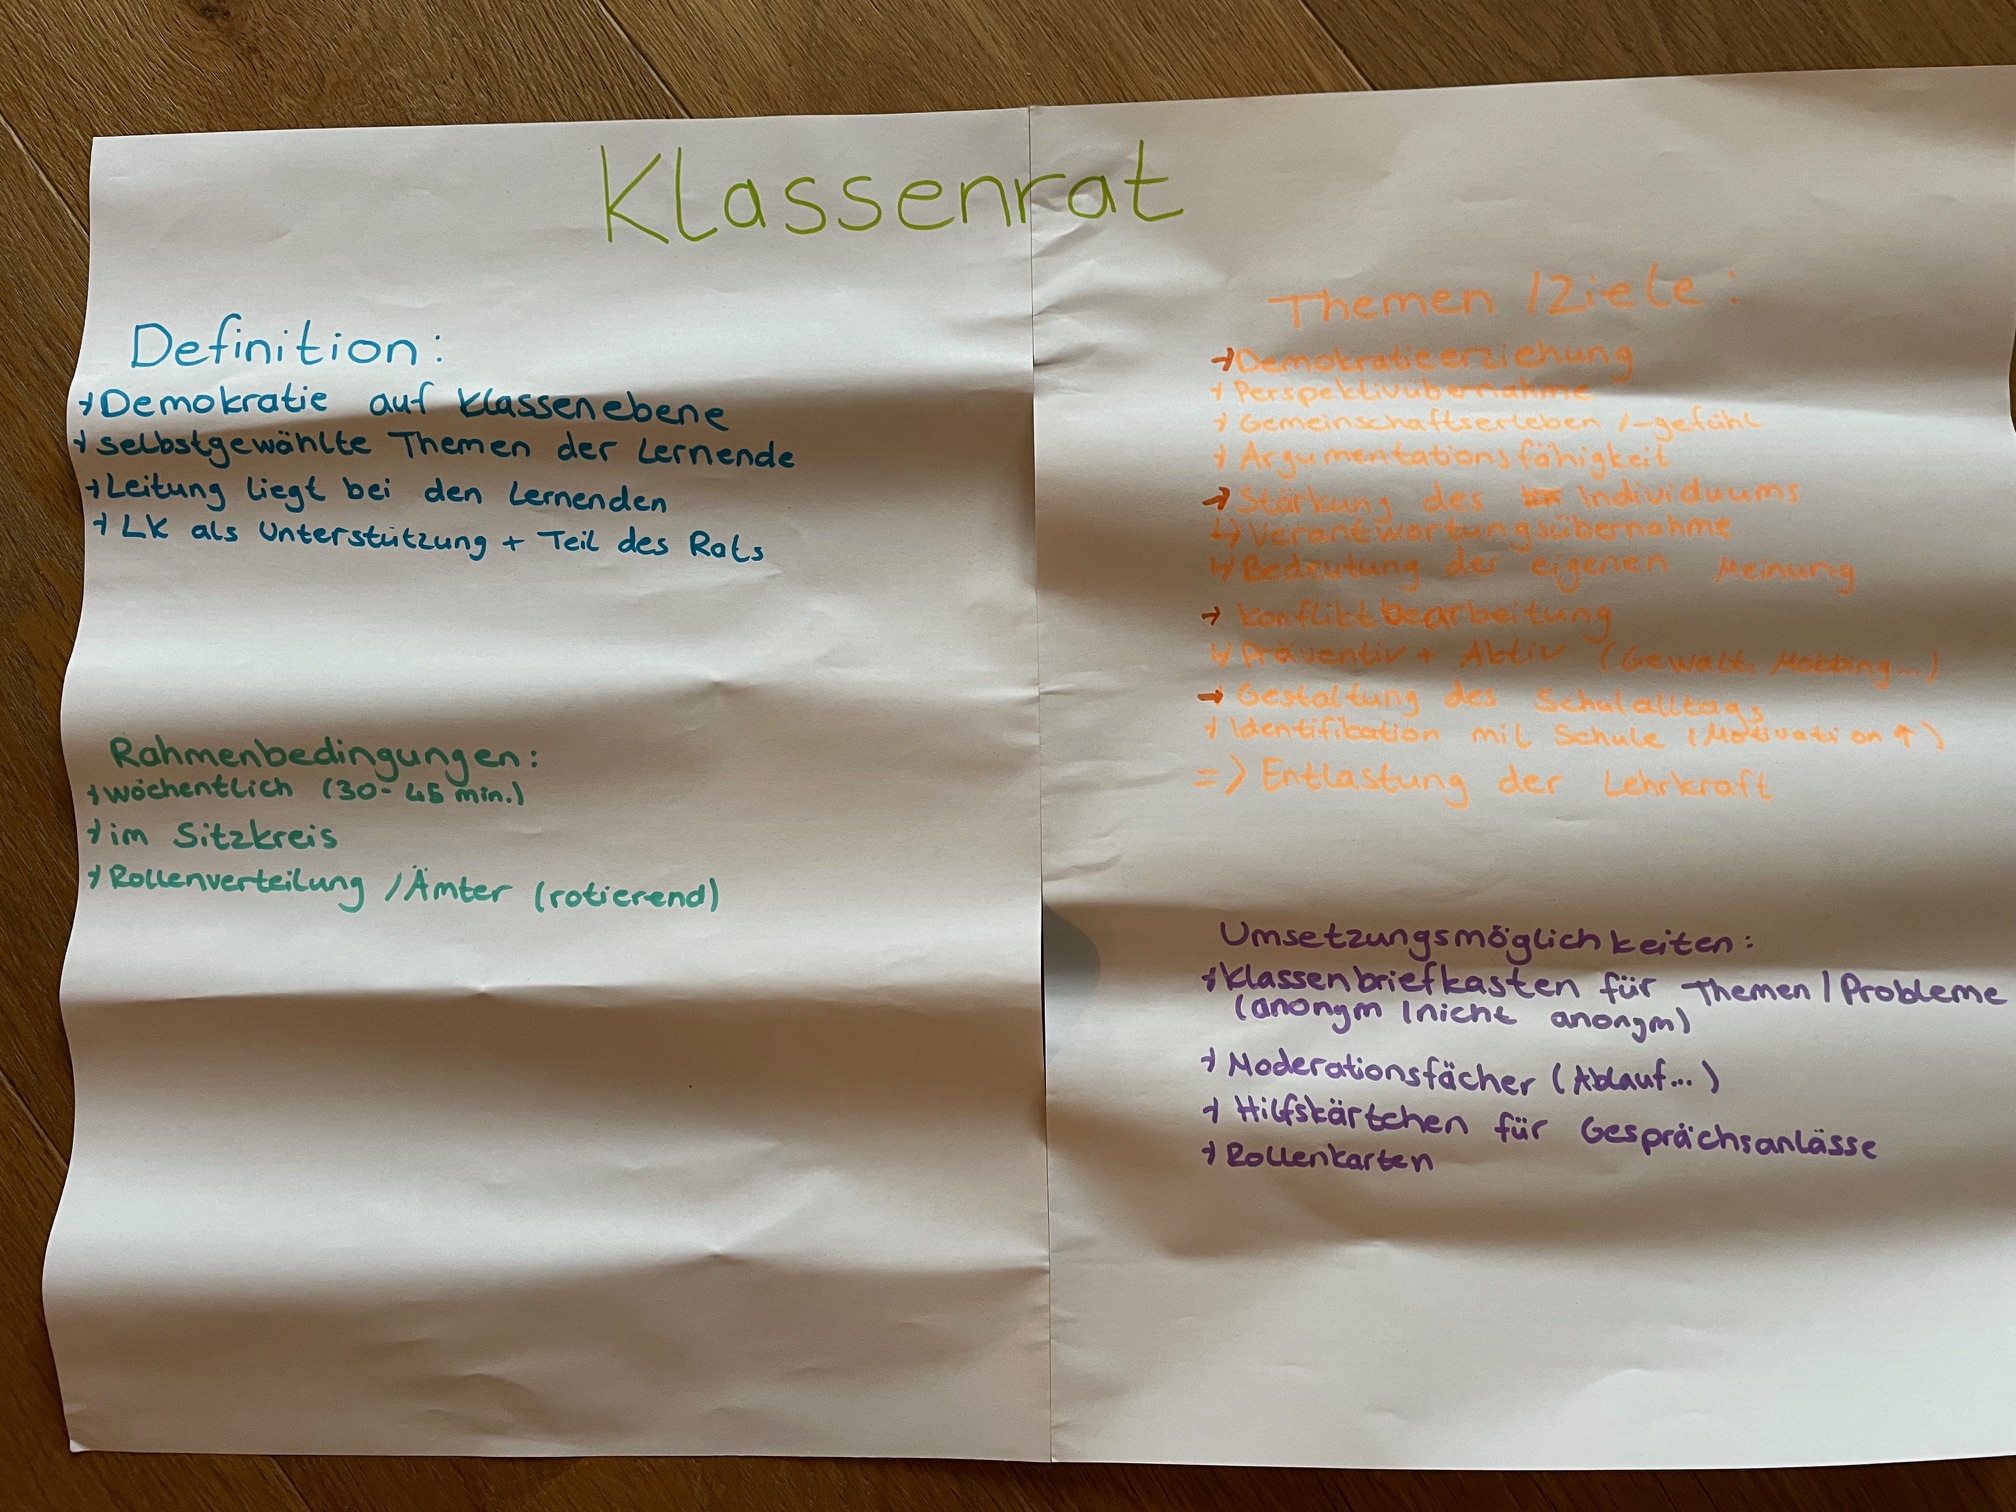 Klassenrat
Definition:
→ Demokratie auf Klassenebene
→ selbstgewählte Themen der Lernende
→ Leitung liegt bei den Lernenden
→ LK als Unterstützung + Teil des Rats
Rahmenbedingungen:
→ wöchentlich (30-45 min.)
→ im Sitzkreis
→ Rollenverteilung / Ämter (rotierend)
Themen / Ziele:
→ Demokratieerziehung
→ Perspektivübernahme
→ Gemeinschaftserleben / -gefühl
→ Argumentationsfähigkeit
→ Stärkung des Individuums
↳ Verantwortungsübernahme
↳ Bedeutung der eigenen Meinung
→ Konfliktbearbeitung
↳ Präventiv + Aktiv (Gewalt, Mobbing...)
→ Gestaltung des Schulalltags
→ Identifikation mit Schule (Motivation ↑)
=> Entlastung der Lehrkraft
Umsetzungsmöglichkeiten:
→ Klassenbriefkasten für Themen / Probleme
(anonym / nicht anonym)
→ Moderationsfächer (Ablauf...)
→ Hilfskärtchen für Gesprächsanlässe
→ Rollenkarten